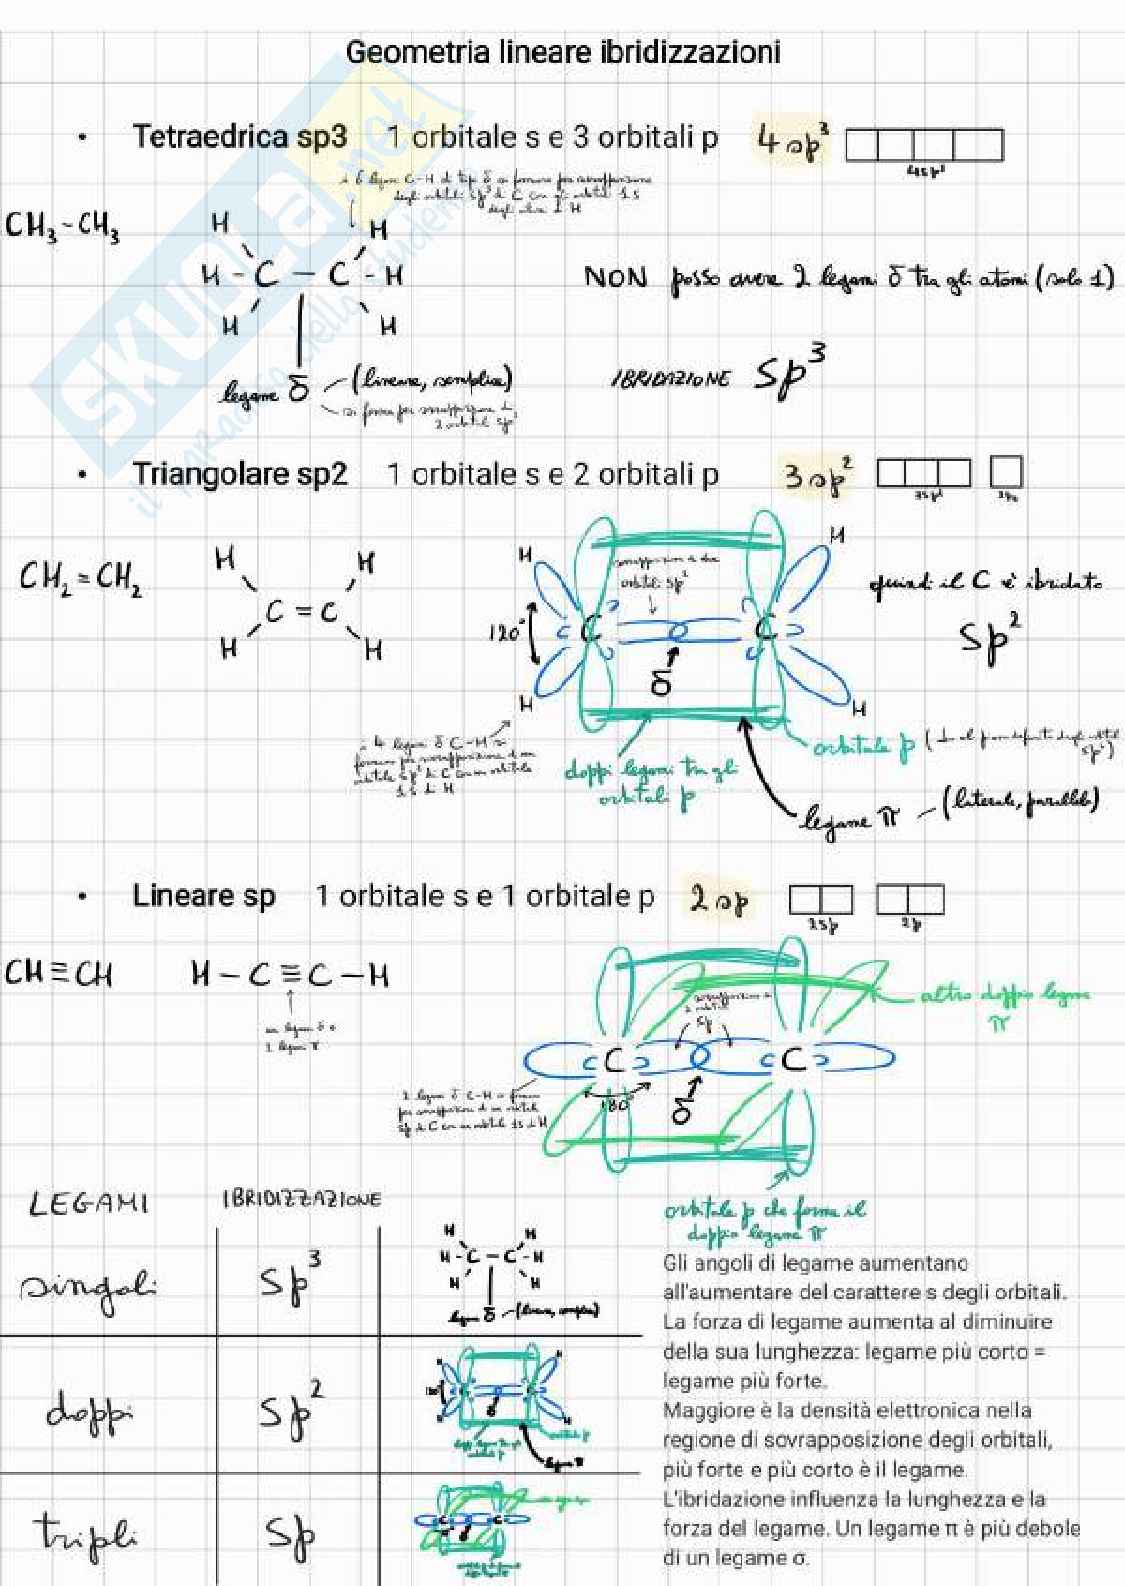 Geometria lineare ibridizzazioni
SKUOLA.net
il paradiso dello studente
• Tetraedrica sp3 1 orbitale s e 3 orbitali p 4 sp³
4sp³
i 6 legami C-H di tipo δ si formano per sovrapposizione
degli orbitali sp³ di C con gli orbitali 1s
degli atomi di H
CH₃-CH₃
H H
H - C - C - H
H H
NON posso avere 2 legami δ tra gli atomi (solo 1)
legame δ (lineare, semplice)
si forma per sovrapposizione di
2 orbitali sp³
IBRIDAZIONE sp³
• Triangolare sp2 1 orbitale s e 2 orbitali p 3 sp²
3sp²
CH₂=CH₂
H H
C = C
H H
H H
sovrapposizione di due
orbitali sp²
120°
C C
δ
H H
quindi il C è ibridato
sp²
i 4 legami δ C-H si
formano per sovrapposizione di un
orbitale sp² di C con un orbitale
1s di H
doppi legami tra gli
orbitali p
orbitale p (⊥ al piano definito dagli orbitali
sp²)
legame π (laterale, parallelo)
• Lineare sp 1 orbitale s e 1 orbitale p 2 sp
2sp 2p
CH≡CH H-C≡C-H
un legame δ e
2 legami π
sovrapposizione di
2 orbitali
sp
altro doppio legame
π
C C
180°
δ
2 legami δ C-H si formano
per sovrapposizione di un orbitale
sp di C con un orbitale 1s di H
orbitale p che forma il
doppio legame π
LEGAMI IBRIDIZZAZIONE
singoli sp³
H H
H-C-C-H
H H
legame δ (lineare, semplice)
doppi sp²
tripli sp
Gli angoli di legame aumentano
all'aumentare del carattere s degli orbitali.
La forza di legame aumenta al diminuire
della sua lunghezza: legame più corto =
legame più forte.
Maggiore è la densità elettronica nella
regione di sovrapposizione degli orbitali,
più forte e più corto è il legame.
L'ibridazione influenza la lunghezza e la
forza del legame. Un legame π è più debole
di un legame σ.